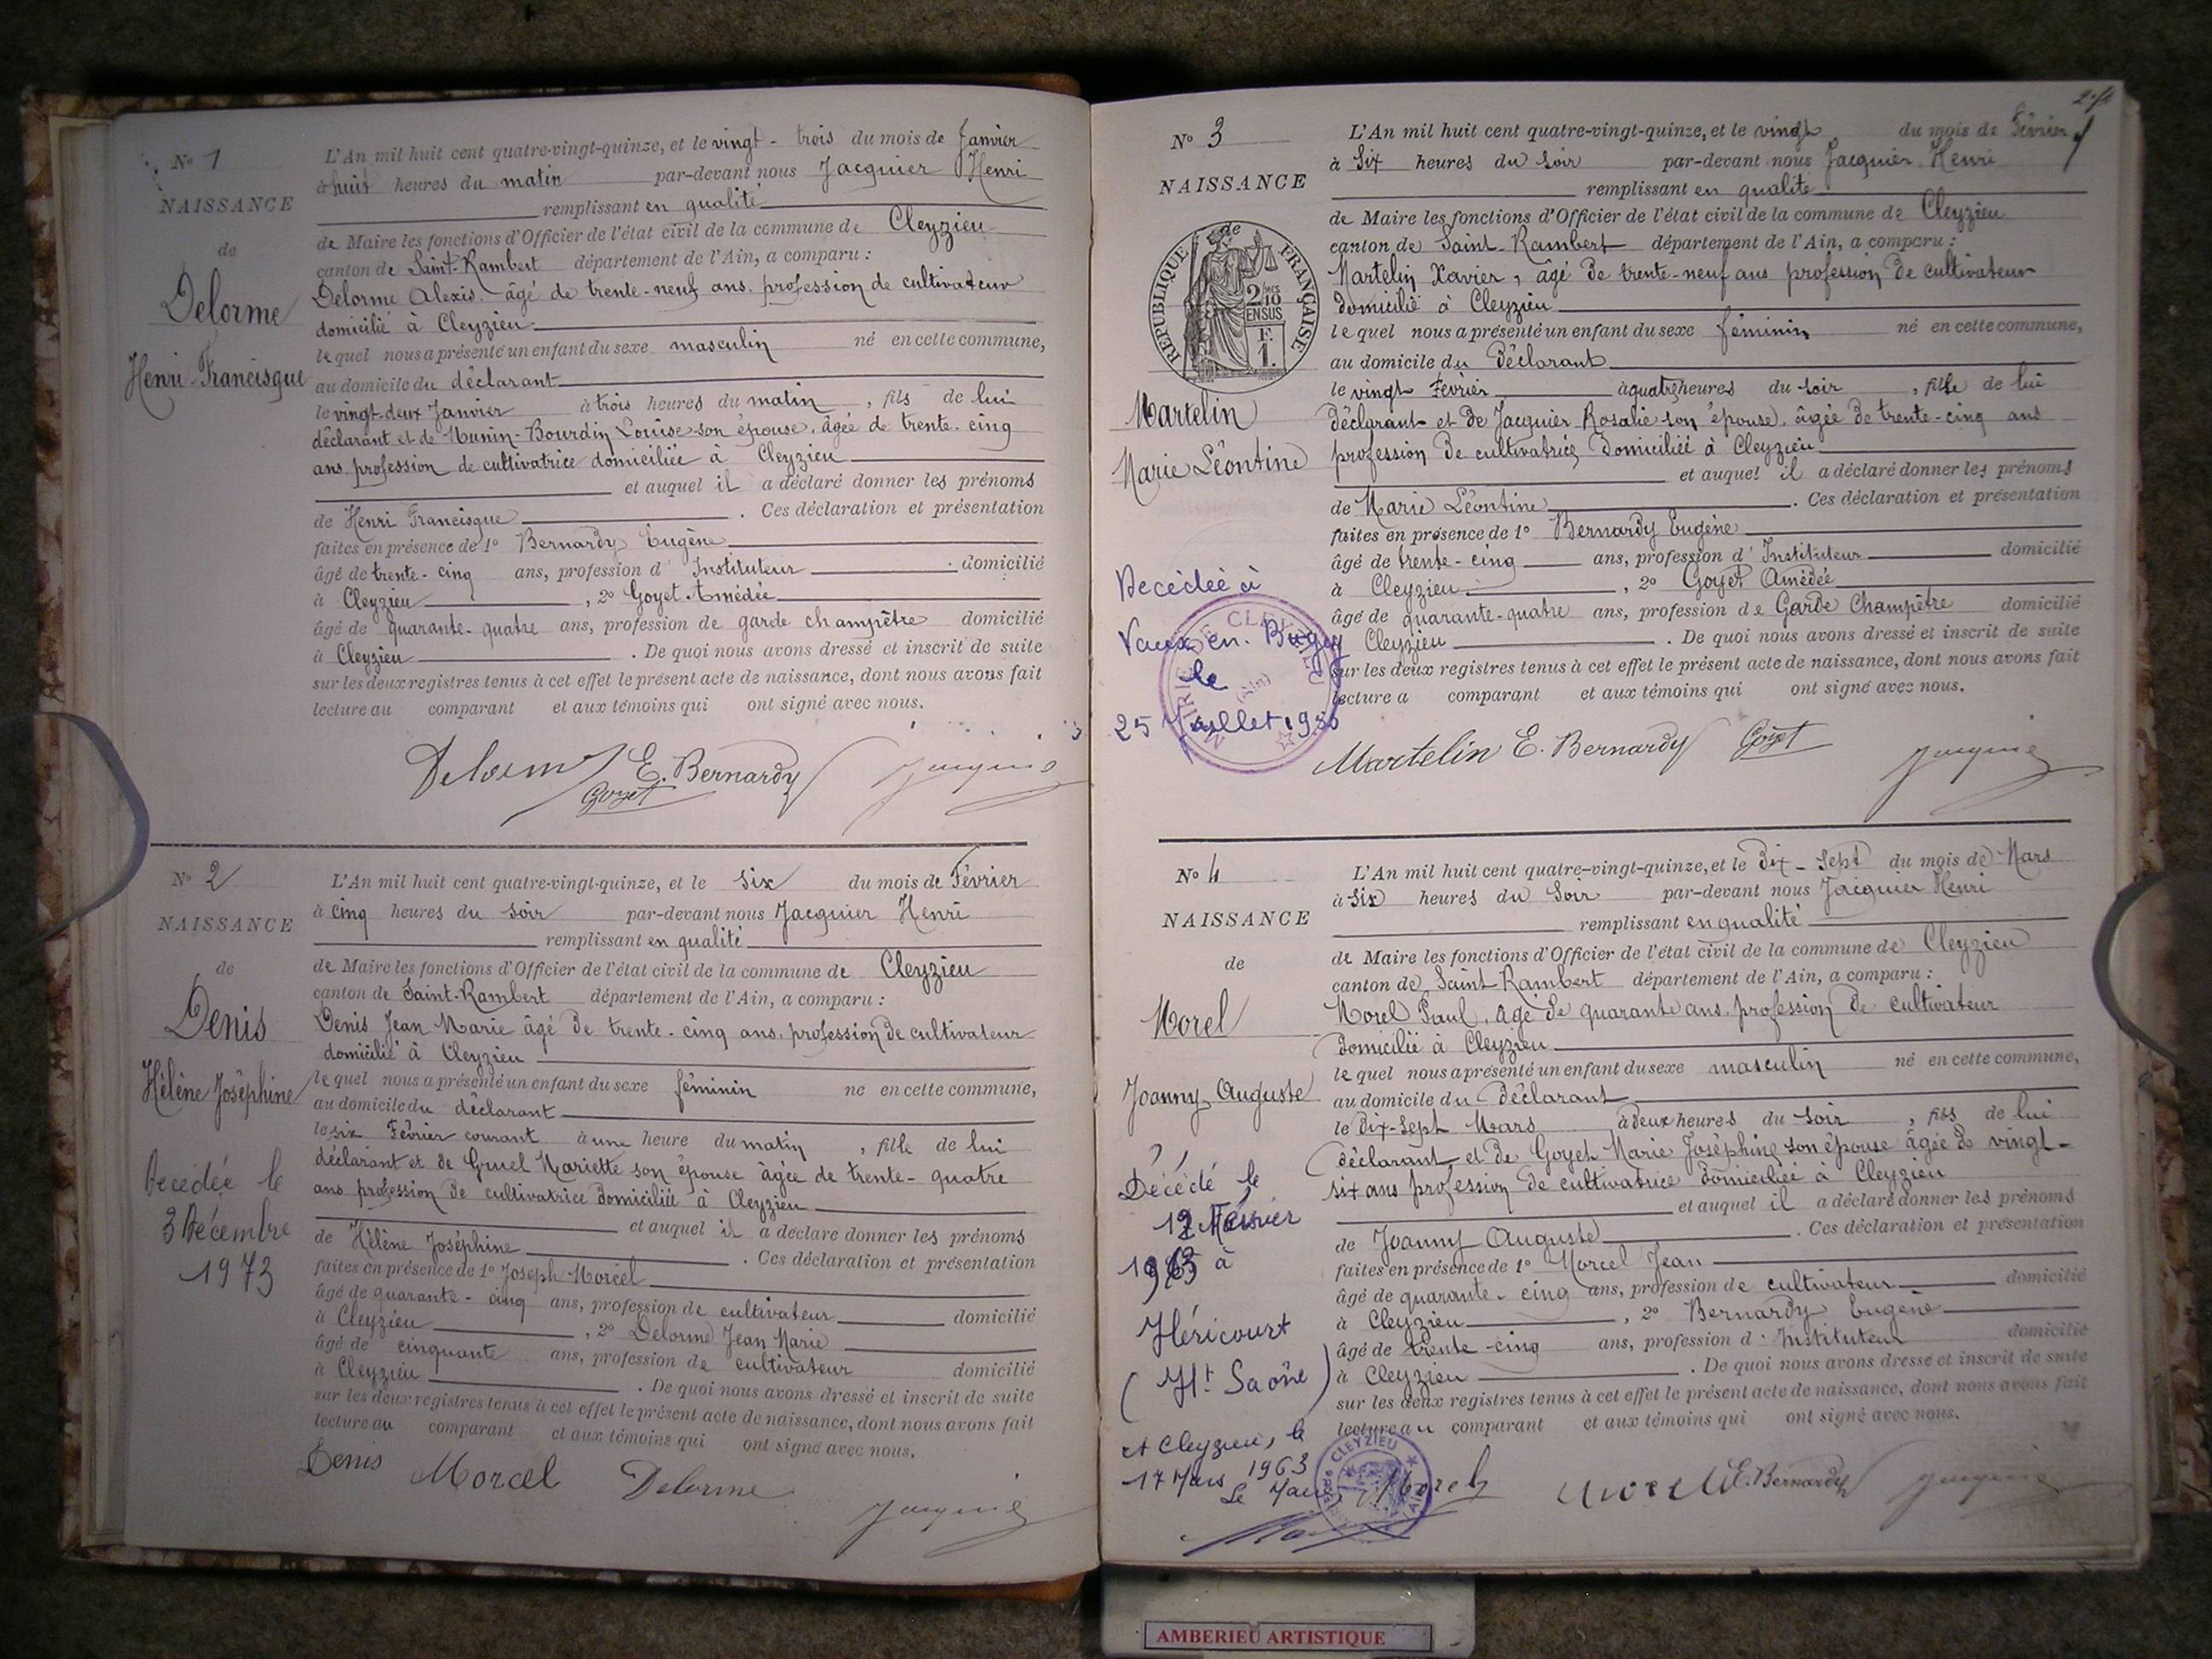 N° 1
NAISSANCE
de
Delorme
Henri-Francisque
L'An mil huit cent quatre-vingt-quinze, et le vingt-trois du mois de Janvier
à huit heures du matin par-devant nous Jacquier Henri
remplissant en qualité
de Maire les fonctions d'Officier de l'état civil de la commune de Cleyzieu
canton de Saint-Rambert département de l'Ain, a comparu :
Delorme Alexis âgé de trente-neuf ans, profession de cultivateur
domicilié à Cleyzieu
lequel nous a présenté un enfant du sexe masculin né en cette commune,
au domicile du déclarant
le vingt-deux Janvier à trois heures du matin, fils de lui
déclarant et de Munin-Bourdin Louise son épouse, âgée de trente-cinq
ans, profession de cultivatrice domiciliée à Cleyzieu
et auquel il a déclaré donner les prénoms
de Henri Francisque. Ces déclaration et présentation
faites en présence de 1° Bernardy Eugène
âgé de trente-cinq ans, profession d'Instituteur domicilié
à Cleyzieu, 2° Goyet Amédée
âgé de quarante-quatre ans, profession de garde champêtre domicilié
à Cleyzieu. De quoi nous avons dressé et inscrit de suite
sur les deux registres tenus à cet effet le présent acte de naissance, dont nous avons fait
lecture au comparant et aux témoins qui ont signé avec nous.
Delorme E. Bernardy Jacquier
Goyet
N° 2
NAISSANCE
de
Denis
Hélène Joséphine
Decedée le
3 Décembre
1973
L'An mil huit cent quatre-vingt-quinze, et le six du mois de Février
à cinq heures du soir par-devant nous Jacquier Henri
remplissant en qualité
de Maire les fonctions d'Officier de l'état civil de la commune de Cleyzieu
canton de Saint-Rambert département de l'Ain, a comparu :
Denis Jean Marie âgé de trente-cinq ans, profession de cultivateur
domicilié à Cleyzieu
lequel nous a présenté un enfant du sexe féminin né en cette commune,
au domicile du déclarant
le six Février courant à une heure du matin, fille de lui
déclarant et de Gruel Mariette son épouse âgée de trente-quatre
ans profession de cultivatrice domiciliée à Cleyzieu
et auquel il a déclaré donner les prénoms
de Hélène Joséphine. Ces déclaration et présentation
faites en présence de 1° Joseph Morcel
âgé de quarante-cinq ans, profession de cultivateur domicilié
à Cleyzieu, 2° Delorme Jean Marie
âgé de cinquante ans, profession de cultivateur domicilié
à Cleyzieu. De quoi nous avons dressé et inscrit de suite
sur les deux registres tenus à cet effet le présent acte de naissance, dont nous avons fait
lecture au comparant et aux témoins qui ont signé avec nous.
Denis Morcel Delorme
Jacquier
N° 3
NAISSANCE
de
REPUBLIQUE FRANÇAISE
2/10
EN SUS
F.
1.
Martelin
Marie Léontine
Decédée à
Vaux en Bugey
le
25 Juillet 1980
L'An mil huit cent quatre-vingt-quinze, et le vingt du mois de Février
à six heures du soir par-devant nous Jacquier Henri
remplissant en qualité
de Maire les fonctions d'Officier de l'état civil de la commune de Cleyzieu
canton de Saint-Rambert département de l'Ain, a comparu :
Martelin Xavier, âgé de trente-neuf ans profession de cultivateur
domicilié à Cleyzieu
lequel nous a présenté un enfant du sexe féminin né en cette commune,
au domicile du déclarant
le vingt Février à quatre heures du soir, fille de lui
déclarant et de Jacquier Rosalie son épouse, âgée de trente-cinq ans
profession de cultivatrice, domiciliée à Cleyzieu
et auquel il a déclaré donner les prénoms
de Marie Léontine. Ces déclaration et présentation
faites en présence de 1° Bernardy Eugène
âgé de trente-cinq ans, profession d'Instituteur domicilié
à Cleyzieu, 2° Goyet Amédée
âgé de quarante-quatre ans, profession de Garde Champêtre domicilié
Cleyzieu. De quoi nous avons dressé et inscrit de suite
sur les deux registres tenus à cet effet le présent acte de naissance, dont nous avons fait
lecture a comparant et aux témoins qui ont signé avec nous.
Martelin E. Bernardy Goyet Jacquier
N° 4
NAISSANCE
de
Morel
Joanny Auguste
Décédé le
12 Février
1963 à
Héricourt
(Hte Saône)
A Cleyzieu, le
17 Mars 1963
Le Maire
L'An mil huit cent quatre-vingt-quinze, et le Dix-Sept du mois de Mars
à six heures du Soir par-devant nous Jacquier Henri
remplissant en qualité
de Maire les fonctions d'Officier de l'état civil de la commune de Cleyzieu
canton de Saint Rambert département de l'Ain, a comparu :
Morel Paul, âgé de quarante ans, profession de cultivateur
domicilié à Cleyzieu
lequel nous a présenté un enfant du sexe masculin né en cette commune,
au domicile du déclarant
le Dix-Sept Mars à deux heures du soir, fils de lui
déclarant et de Goyet Marie Joséphine son épouse âgée de vingt-
six ans profession de cultivatrice domiciliée à Cleyzieu
et auquel il a déclaré donner les prénoms
de Joanny Auguste. Ces déclaration et présentation
faites en présence de 1° Morcel Jean
âgé de quarante-cinq ans, profession de cultivateur domicilié
à Cleyzieu, 2° Bernardy Eugène
âgé de trente-cinq ans, profession d'Instituteur domicilié
à Cleyzieu. De quoi nous avons dressé et inscrit de suite
sur les deux registres tenus à cet effet le présent acte de naissance, dont nous avons fait
lecture au comparant et aux témoins qui ont signé avec nous.
CLEYZIEU
Morel E. Bernardy Jacquier
AMBERIEU ARTISTIQUE